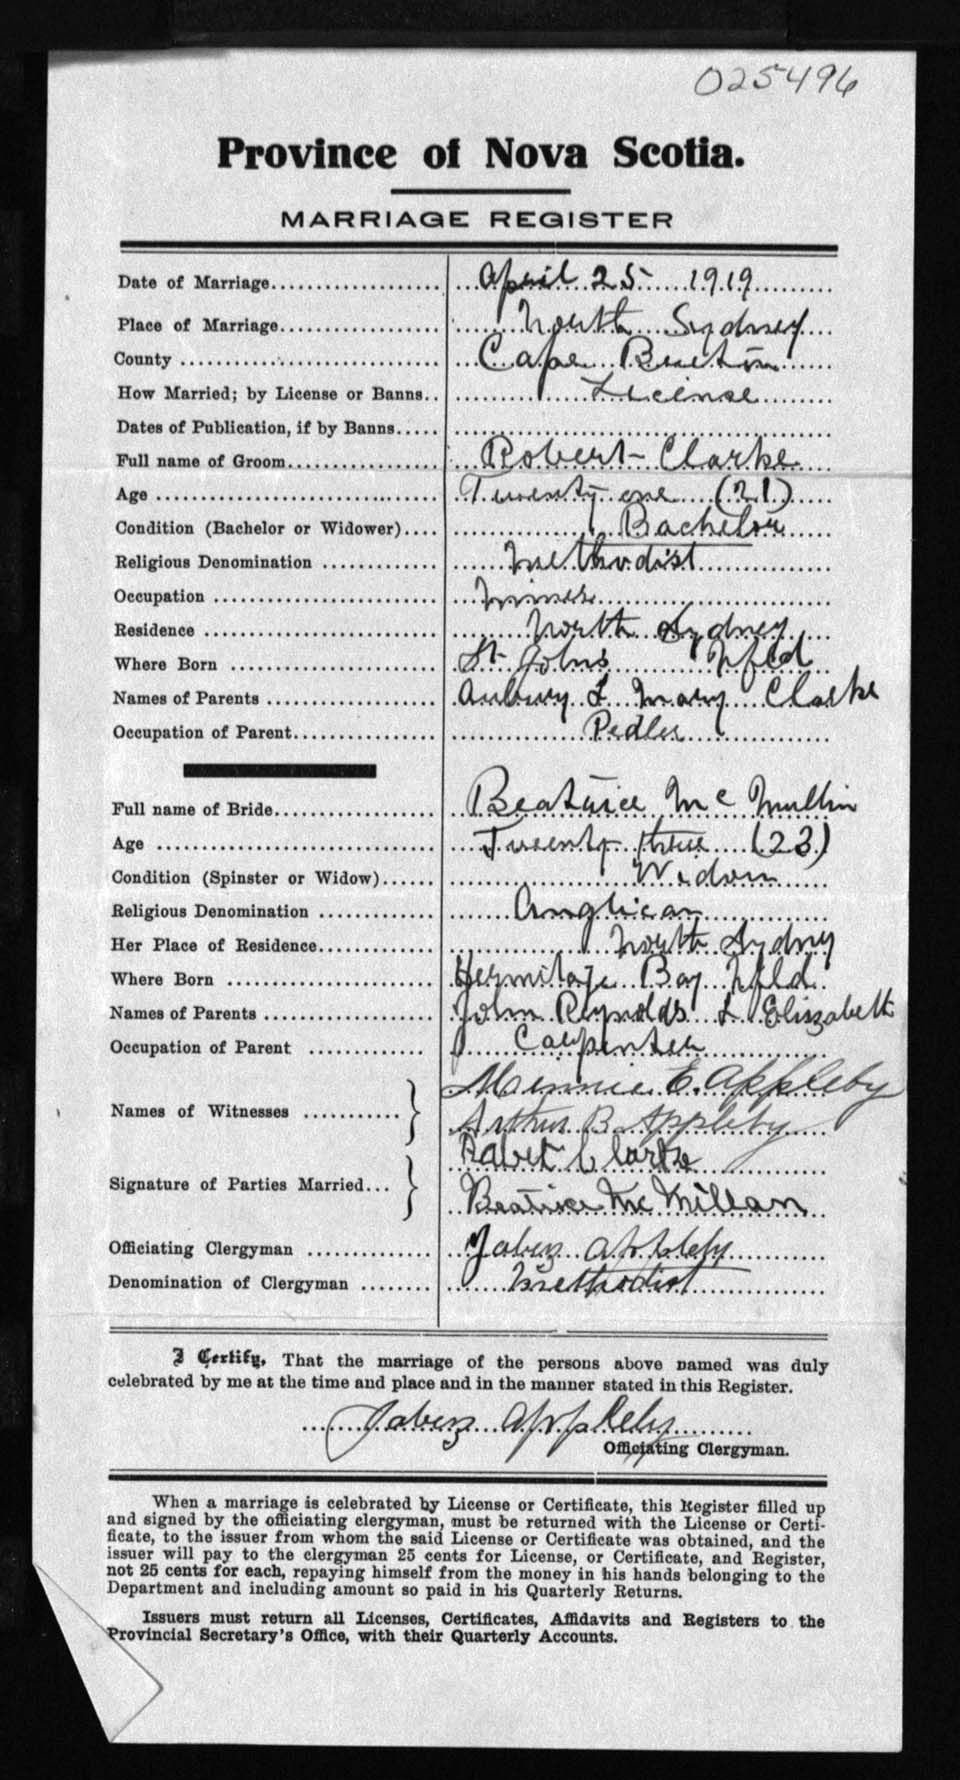 025496
Province of Nova Scotia.
MARRIAGE REGISTER
Date of Marriage.................... April 25 1919
Place of Marriage................... North Sydney
County .............................. Cape Breton
How Married; by License or Banns.. License
Dates of Publication, if by Banns.....
Full name of Groom.................. Robert Clarke
Age .................................. Twenty one (21)
Condition (Bachelor or Widower).... Bachelor
Religious Denomination ............. Methodist
Occupation .......................... Miner
Residence ........................... North Sydney
Where Born ......................... St Johns Nfld
Names of Parents .................... Aubury & Mary Clarke
Occupation of Parent................. Pedler
Full name of Bride................... Beatrice Mc Mullin
Age .................................. Twenty three (23)
Condition (Spinster or Widow)...... Widow
Religious Denomination ............. Anglican
Her Place of Residence.............. North Sydney
Where Born ......................... Hermitage Bay Nfld.
Names of Parents .................... John Reynolds & Elizabeth
Occupation of Parent ............... Carpenter
Names of Witnesses ........... } Minnie E. Appleby
Arthur B. Appleby
Signature of Parties Married... } Robert Clarke
Beatrice Mc Millan
Officiating Clergyman .............. Jabez Appleby
Denomination of Clergyman ........ Methodist
I Certify, That the marriage of the persons above named was duly
celebrated by me at the time and place and in the manner stated in this Register.
Jabez Appleby
Officiating Clergyman.
When a marriage is celebrated by License or Certificate, this Register filled up
and signed by the officiating clergyman, must be returned with the License or Certi-
ficate, to the issuer from whom the said License or Certificate was obtained, and the
issuer will pay to the clergyman 25 cents for License, or Certificate, and Register,
not 25 cents for each, repaying himself from the money in his hands belonging to the
Department and including amount so paid in his Quarterly Returns.
Issuers must return all Licenses, Certificates, Affidavits and Registers to the
Provincial Secretary's Office, with their Quarterly Accounts.